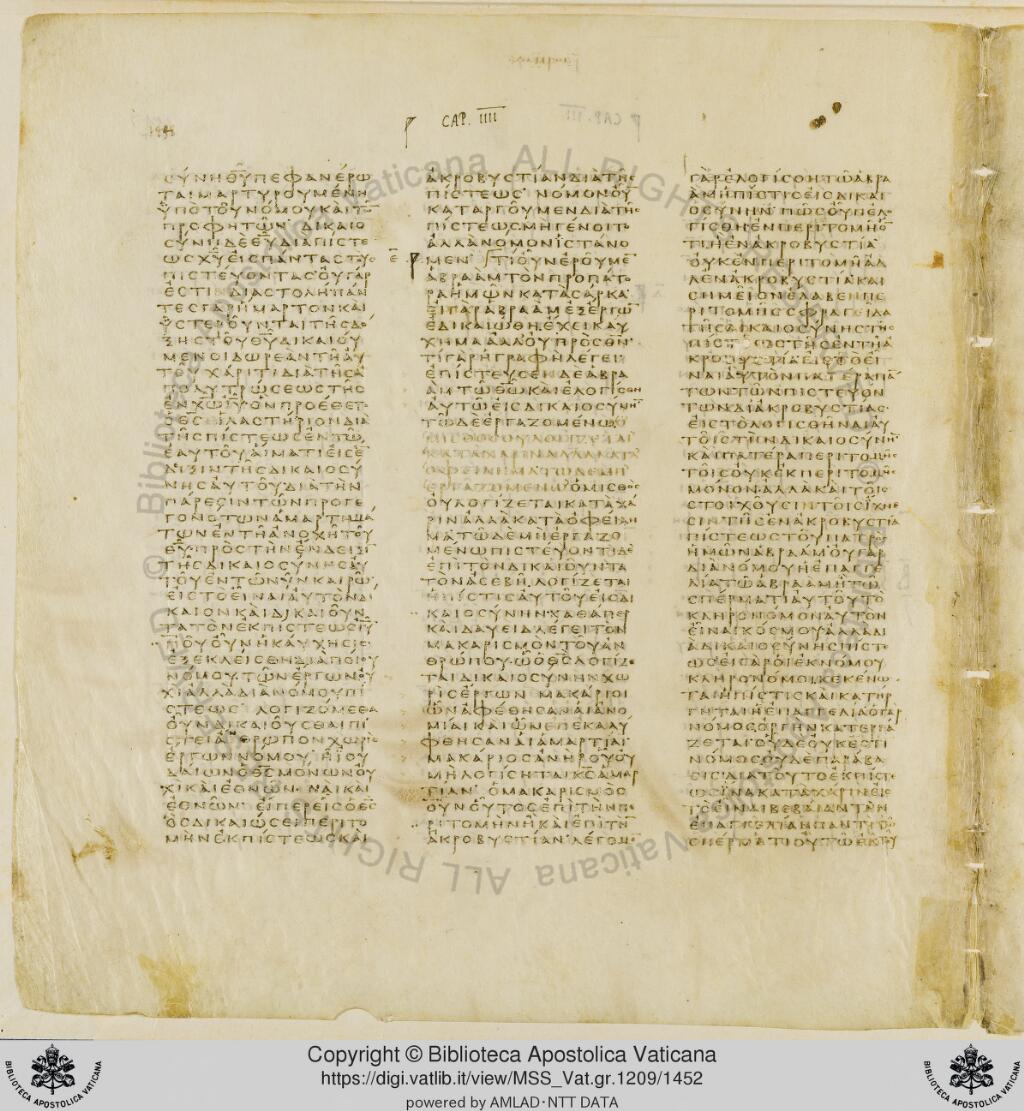 CAP. IIII
ϹΥΝΗΘΥΠΕΦΑΝΕΡΩ
ΤΑΙΜΑΡΤΥΡΟΥΜΕΝΗ
ΥΠΟΤΟΥΝΟΜΟΥΚΑΙΤΩ
ΠΡΟΦΗΤΩΝ ΔΙΚΑΙΟ
ϹΥΝΗΔΕΘΥΔΙΑΠΙϹΤΕ
ΩϹΧΥΕΙϹΠΑΝΤΑϹΤΟΥ
ΠΙϹΤΕΥΟΝΤΑϹΟΥΓΑΡ
ΕϹΤΙΝΔΙΑϹΤΟΛΗΠΑΝ
ΤΕϹΓΑΡΗΜΑΡΤΟΝΚΑΙ
ΥϹΤΕΡΟΥΝΤΑΙΤΗϹΔΟ
ΞΗϹΤΟΥΘΥΔΙΚΑΙΟΥ
ΜΕΝΟΙΔΩΡΕΑΝΤΗΑΥ
ΤΟΥΧΑΡΙΤΙΔΙΑΤΗϹΑ
ΠΟΛΥΤΡΩϹΕΩϹΤΗϹ
ΕΝΧΩΙΥΟΝΠΡΟΕΘΕΤ
ΟΘϹΙΛΑϹΤΗΡΙΟΝΔΙΑ
ΤΗϹΠΙϹΤΕΩϹΕΝΤΩ
ΕΑΥΤΟΥΑΙΜΑΤΙΕΙϹΕ
ΔΙΞΙΝΤΗϹΔΙΚΑΙΟϹΥ
ΝΗϹΑΥΤΟΥΔΙΑΤΗΝ
ΠΑΡΕϹΙΝΤΩΝΠΡΟΓΕ
ΓΟΝΟΤΩΝΑΜΑΡΤΗΜΑ
ΤΩΝΕΝΤΗΑΝΟΧΗΤΟΥ
ΘΥΠΡΟϹΤΗΝΕΝΔΕΙΞΙ
ΤΗϹΔΙΚΑΙΟϹΥΝΗϹΑΥ
ΤΟΥΕΝΤΩΝΥΝΚΑΙΡΩ
ΕΙϹΤΟΕΙΝΑΙΑΥΤΟΝΔΙ
ΚΑΙΟΝΚΑΙΔΙΚΑΙΟΥΝ
ΤΑΤΟΝΕΚΠΙϹΤΕΩϹΙΥ
ΠΟΥΟΥΝΗΚΑΥΧΗϹΙϹ
ΕΞΕΚΛΕΙϹΘΗΔΙΑΠΟΙΟΥ
ΝΟΜΟΥΤΩΝΕΡΓΩΝΟΥ
ΧΙΑΛΛΑΔΙΑΝΟΜΟΥΠΙ
ϹΤΕΩϹ ΛΟΓΙΖΟΜΕΘΑ
ΟΥΝΔΙΚΑΙΟΥϹΘΑΙΠΙ
ϹΤΕΙΑΝΘΡΩΠΟΝΧΩΡΙϹ
ΕΡΓΩΝΝΟΜΟΥ ΗΙΟΥ
ΔΑΙΩΝΟΘϹΜΟΝΩΝΟΥ
ΧΙΚΑΙΕΘΝΩΝ ΝΑΙΚΑΙ
ΕΘΝΩΝ ΕΙΠΕΡΕΙϹΟΘϹ
ΟϹΔΙΚΑΙΩϹΕΙΠΕΡΙΤΟ
ΜΗΝΕΚΠΙϹΤΕΩϹΚΑΙ
ΑΚΡΟΒΥϹΤΙΑΝΔΙΑΤΗϹ
ΠΙϹΤΕΩϹ ΝΟΜΟΝΟΥ
ΚΑΤΑΡΓΟΥΜΕΝΔΙΑΤΗϹ
ΠΙϹΤΕΩϹΜΗΓΕΝΟΙΤΟ
ΑΛΛΑΝΟΜΟΝΙϹΤΑΝΟ
ΜΕΝ ΤΙΟΥΝΕΡΟΥΜΕ
ΑΒΡΑΑΜΤΟΝΠΡΟΠΑΤΟ
ΡΑΗΜΩΝΚΑΤΑϹΑΡΚΑ
ΕΙΓΑΡΑΒΡΑΑΜΕΞΕΡΓΩ
ΕΔΙΚΑΙΩΘΗΕΧΕΙΚΑΥ
ΧΗΜΑΑΛΛΟΥΠΡΟϹΘΝ
ΤΙΓΑΡΗΓΡΑΦΗΛΕΓΕΙ
ΕΠΙϹΤΕΥϹΕΝΔΕΑΒΡΑ
ΑΜΤΩΘΩΚΑΙΕΛΟΓΙϹΘΗ
ΑΥΤΩΕΙϹΔΙΚΑΙΟϹΥΝΗΝ
ΤΩΔΕΕΡΓΑΖΟΜΕΝΩΟ
ΜΙϹΘΟϹΟΥΛΟΓΙΖΕΤΑΙ
ΚΑΤΑΧΑΡΙΝΑΛΛΑΚΑΤΑ
ΟΦΕΙΛΗΜΑΤΩΔΕΜΗ
ΕΡΓΑΖΟΜΕΝΩΟΜΙϹΘΟϹ
ΟΥΛΟΓΙΖΕΤΑΙΚΑΤΑΧΑ
ΡΙΝΑΛΛΑΚΑΤΑΟΦΕΙΛΗ
ΜΑΤΩΔΕΜΗΕΡΓΑΖΟ
ΜΕΝΩΠΙϹΤΕΥΟΝΤΙΔΕ
ΕΠΙΤΟΝΔΙΚΑΙΟΥΝΤΑ
ΤΟΝΑϹΕΒΗ ΛΟΓΙΖΕΤΑΙ
ΗΠΙϹΤΙϹΑΥΤΟΥΕΙϹΔΙ
ΚΑΙΟϹΥΝΗΝΚΑΘΑΠΕΡ
ΚΑΙΔΑΥΕΙΔΛΕΓΕΙΤΟΝ
ΜΑΚΑΡΙϹΜΟΝΤΟΥΑΝ
ΘΡΩΠΟΥ ΩΟΘϹΛΟΓΙΖΕ
ΤΑΙΔΙΚΑΙΟϹΥΝΗΝΧΩ
ΡΙϹΕΡΓΩΝ ΜΑΚΑΡΙΟΙ
ΩΝΑΦΕΘΗϹΑΝΑΙΑΝΟ
ΜΙΑΙΚΑΙΩΝΕΠΕΚΑΛΥ
ΦΘΗϹΑΝΑΙΑΜΑΡΤΙΑΙ
ΜΑΚΑΡΙΟϹΑΝΗΡΟΥΟΥ
ΜΗΛΟΓΙϹΗΤΑΙΚϹΑΜΑΡ
ΤΙΑΝ ΟΜΑΚΑΡΙϹΜΟϹ
ΟΥΝΟΥΤΟϹΕΠΙΤΗΝΠΕ
ΡΙΤΟΜΗΝΗΚΑΙΕΠΙΤΗ
ΑΚΡΟΒΥϹΤΙΑΝ ΛΕΓΟΜΕ
ΓΑΡΕΛΟΓΙϹΘΗΤΩΑΒΡΑ
ΑΜΗΠΙϹΤΙϹΕΙϹΔΙΚΑΙ
ΟϹΥΝΗΝ ΠΩϹΟΥΝΕΛΟ
ΓΙϹΘΗΕΝΠΕΡΙΤΟΜΗΟ
ΤΙΗΕΝΑΚΡΟΒΥϹΤΙΑ
ΟΥΚΕΝΠΕΡΙΤΟΜΗΑΛ
ΛΕΝΑΚΡΟΒΥϹΤΙΑΚΑΙ
ϹΗΜΕΙΟΝΕΛΑΒΕΝΠΕ
ΡΙΤΟΜΗϹϹΦΡΑΓΕΙΔΑ
ΤΗϹΔΙΚΑΙΟϹΥΝΗϹΤΗϹ
ΠΙϹΤΕΩϹΤΗϹΕΝΤΗΑ
ΚΡΟΒΥϹΤΙΑΕΙϹΤΟΕΙ
ΝΑΙΑΥΤΟΝΠΑΤΕΡΑΠΑ
ΤΩΝΤΩΝΠΙϹΤΕΥΟΝ
ΤΩΝΔΙΑΚΡΟΒΥϹΤΙΑϹ
ΕΙϹΤΟΛΟΓΙϹΘΗΝΑΙΑΥ
ΤΟΙϹΤΗΝΔΙΚΑΙΟϹΥΝΗ
ΚΑΙΠΑΤΕΡΑΠΕΡΙΤΟΜΗϹ
ΤΟΙϹΟΥΚΕΚΠΕΡΙΤΟΜΗϹ
ΜΟΝΟΝΑΛΛΑΚΑΙΤΟΙϹ
ϹΤΟΙΧΟΥϹΙΝΤΟΙϹΙΧΝΕ
ϹΙΝΤΗϹΕΝΑΚΡΟΒΥϹΤΙΑ
ΠΙϹΤΕΩϹΤΟΥΠΑΤΡΟϹ
ΗΜΩΝΑΒΡΑΑΜΟΥΓΑΡ
ΔΙΑΝΟΜΟΥΗΕΠΑΓΓΕ
ΛΙΑΤΩΑΒΡΑΑΜΗΤΩ
ϹΠΕΡΜΑΤΙΑΥΤΟΥΤΟ
ΚΛΗΡΟΝΟΜΟΝΑΥΤΟΝ
ΕΙΝΑΙΚΟϹΜΟΥΑΛΛΑΔΙ
ΑΔΙΚΑΙΟϹΥΝΗϹΠΙϹΤΕ
ΩϹΕΙΓΑΡΟΙΕΚΝΟΜΟΥ
ΚΛΗΡΟΝΟΜΟΙΚΕΚΕΝΩ
ΤΑΙΗΠΙϹΤΙϹΚΑΙΚΑΤΗΡ
ΓΗΤΑΙΗΕΠΑΓΓΕΛΙΑΟΓΑΡ
ΝΟΜΟϹΟΡΓΗΝΚΑΤΕΡΓΑ
ΖΕΤΑΙΟΥΔΕΟΥΚΕϹΤΙ
ΝΟΜΟϹΟΥΔΕΠΑΡΑΒΑ
ϹΙϹΔΙΑΤΟΥΤΟΕΚΠΙϹΤΕ
ΩϹΙΝΑΚΑΤΑΧΑΡΙΝΕΙϹ
ΤΟΕΙΝΑΙΒΕΒΑΙΑΝΤΗΝ
ΕΠΑΓΓΕΛΙΑΝΠΑΝΤΙΤΩ
ϹΠΕΡΜΑΤΙΟΥΤΩΕΚΤΟΥ
Copyright © Biblioteca Apostolica Vaticana
https://digi.vatlib.it/view/MSS_Vat.gr.1209/1452
powered by AMLAD·NTT DATA
BIBLIOTECA APOSTOLICA VATICANA
BIBLIOTECA APOSTOLICA VATICANA